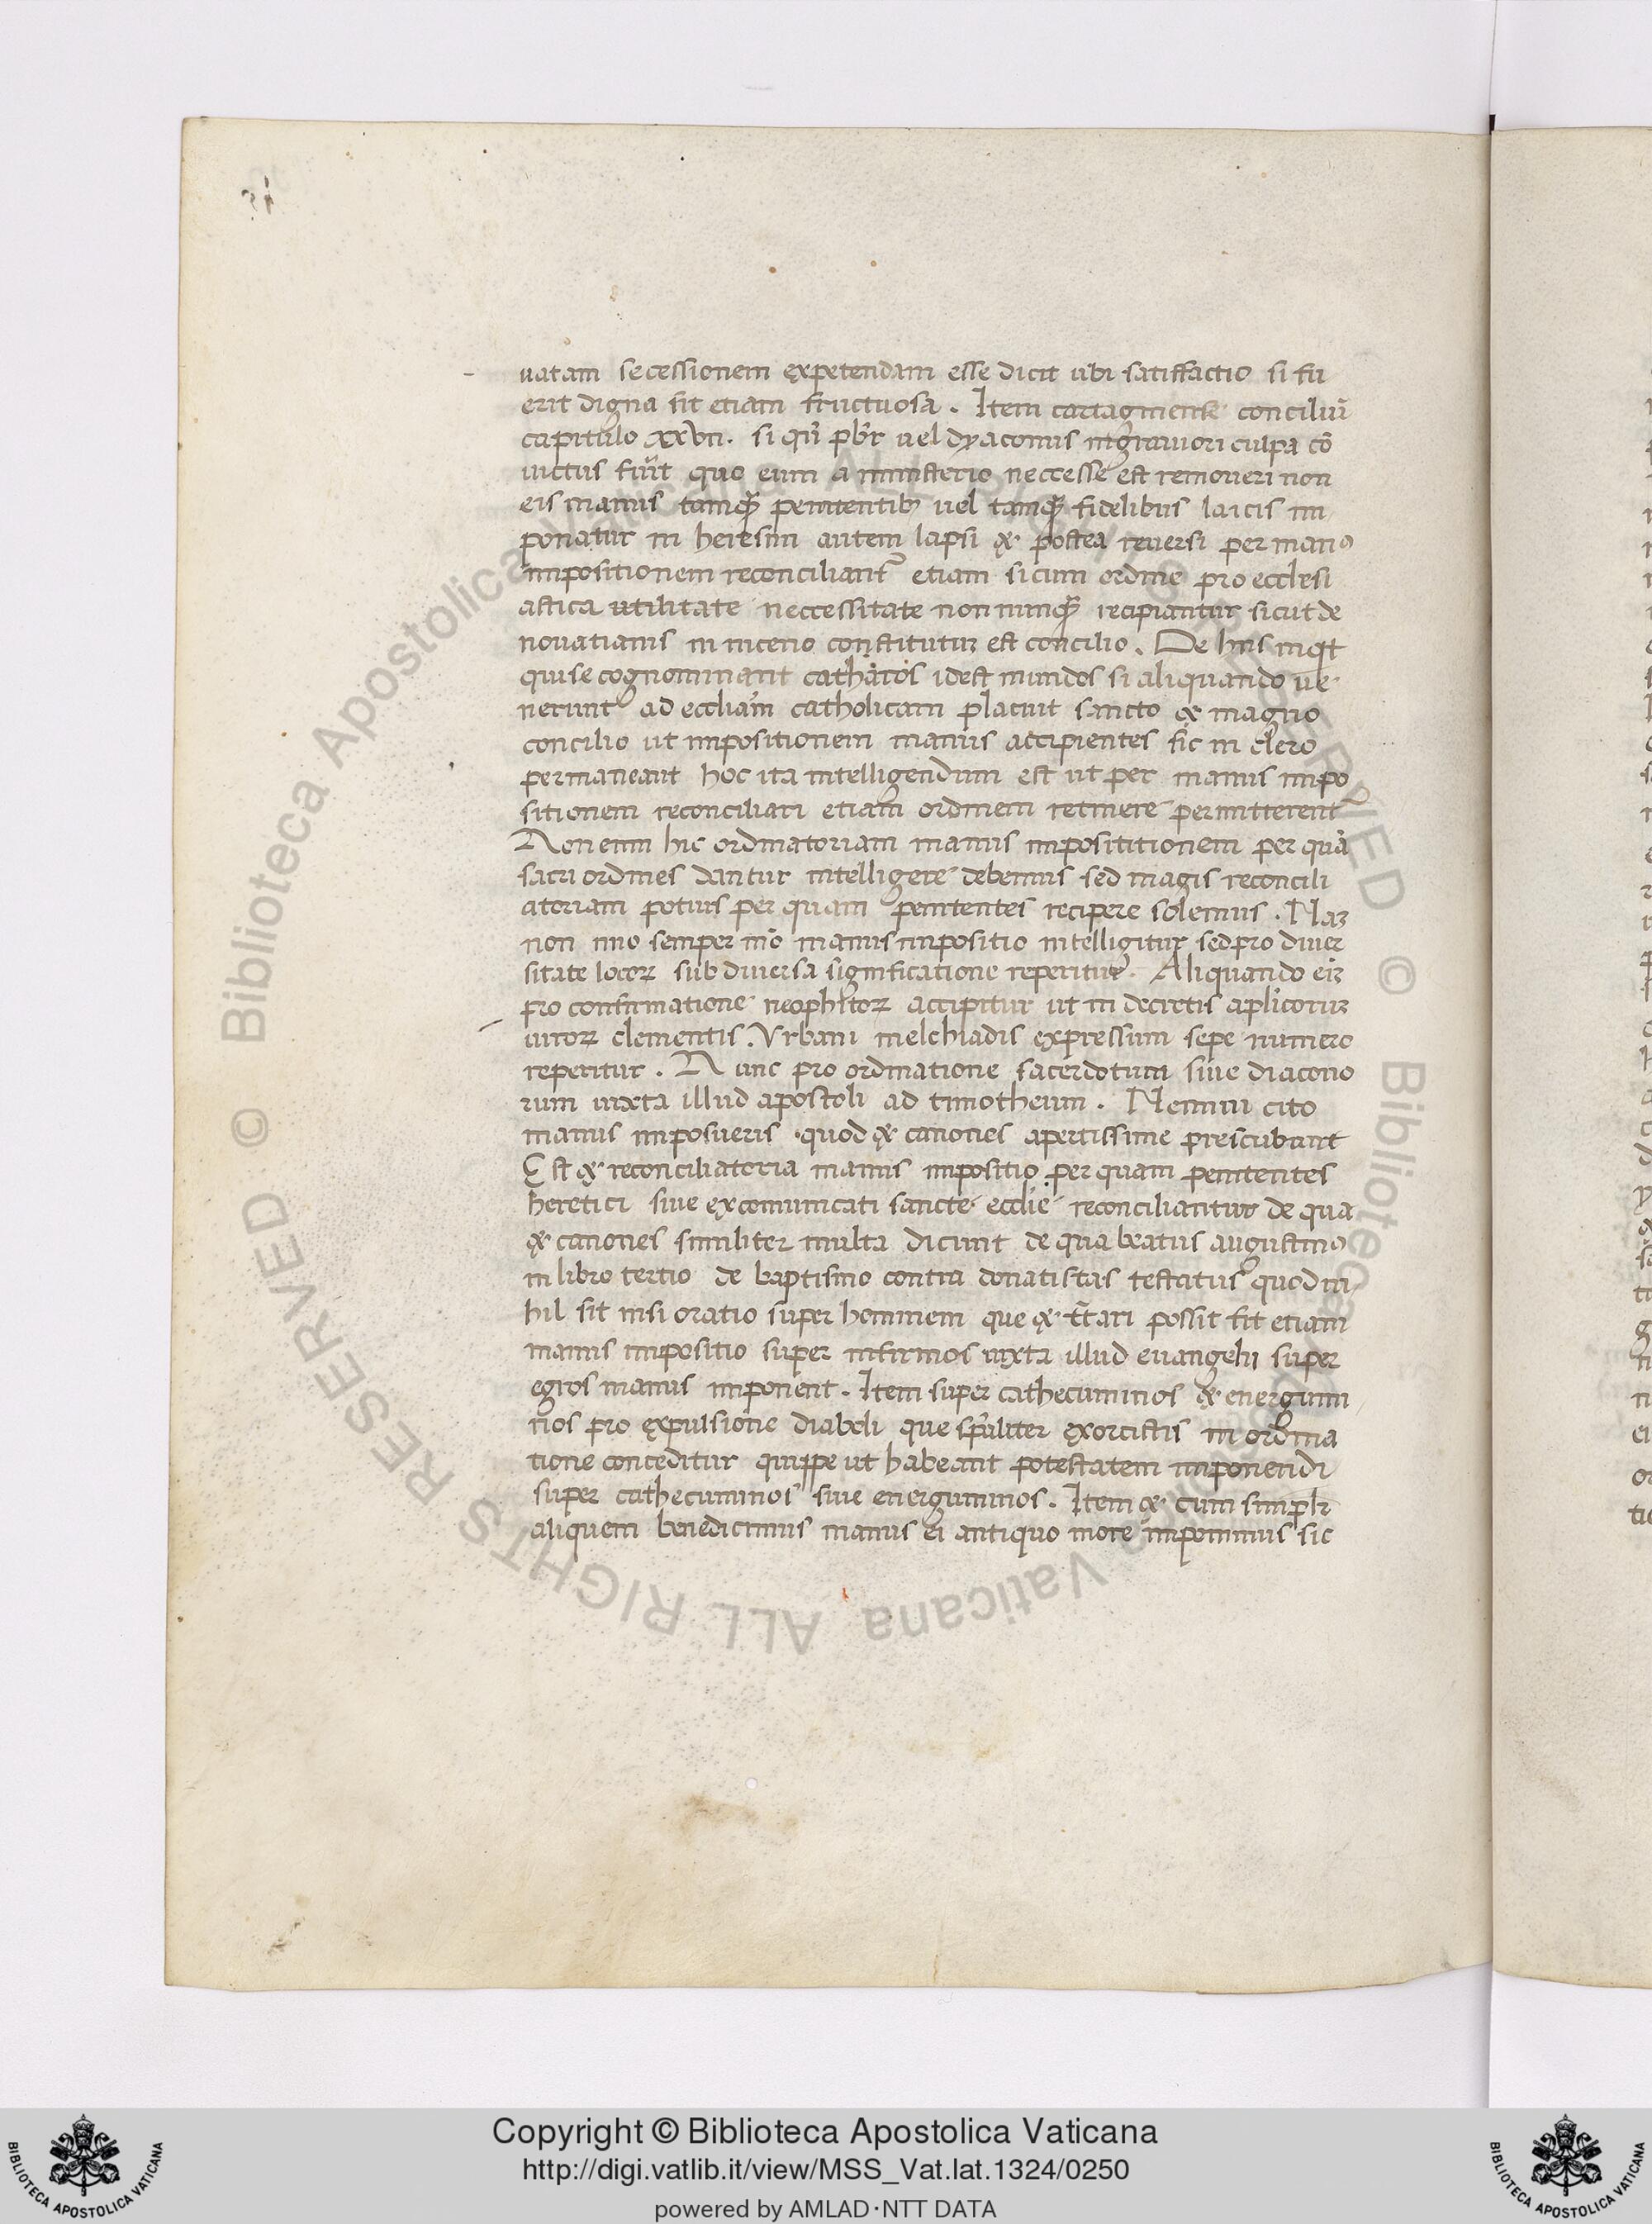 uatam secessionem expetendam esse dicit ubi satisfactio si fu
erit digna sit etiam fructuosa. Item cartaginense conciliũ
capitulo xxvii. si qñ pbr̃ uel dyaconus in grauiori culpa cõ
uictus fuĩt quo eum a ministerio neccesse est remoueri non
eis manus tamq̃ penitentibꝫ uel tamq̃ fidelibus laicis im
ponatur in heresim autem lapsi & postea reuersi per manꝰ
impositionem reconciliant᷑ etiam si cum ordine pro ecclesi
astica utilitate neccessitate non nunq̃ recipiantur sicut de
nouatianis in niceno constitutuꝫ est concilio. De hiis inqͥt
qui se cognominant catharos idest mundos si aliquando ue
nerunt ad eccliam̃ catholicam placuit sancto & magno
concilio ut impositionem manus accipientes sic in clero
permaneant hoc ita intelligendum est ut per manus impo
sitionem reconciliati etiam ordinem retinere permitterent᷑
Non enim hic ordinatoriam manus imposititionem per quã
sacri ordines dantur intelligere debemus sed magis reconcili
atoriam potius per quam penitentes recipere solemus. Naꝫ
non uno semper mõ manus impositio intelligitur sed pro diuer
sitate locoꝝ sub diuersa significatione reperitur. Aliquando eiꝫ
pro confirmatione neophitoꝝ accipitur ut in decretis aplicoruꝫ
uiroꝝ clementis. Vrbani melchiadis expressum sepe numero
reperitur. Nunc pro ordinatione sacerdotum siue diacono
rum iuxta illud apostoli ad timotheum. Nemini cito
manus imposueris quod & canones apertissime prescribunt
Est & reconciliatoria manus impositio per quam penitentes
heretici siue excomunicati sancte ecclie reconciliantur de qua
& canones similiter multa dicunt de qua beatus augustinꝰ
in libro tertio de baptismo contra donatistas testatus quod ni
hil sit nisi oratio super hominem que & it̃ari possit fit etiam
manus impositio super infirmos iuxta illud euangelii super
egros manus imponent. Item super cathecuminos & energumi
nos pro expulsione diaboli que sp̃aliter exorcistis in ordina
tione conceditur quippe ut habeant potestatem imponendi
super cathecuminos siue energuminos. Item & cum simplr̃
aliquem benedicimus manus ei antiquo more imponimus sic
Copyright © Biblioteca Apostolica Vaticana
http://digi.vatlib.it/view/MSS_Vat.lat.1324/0250
powered by AMLAD·NTT DATA